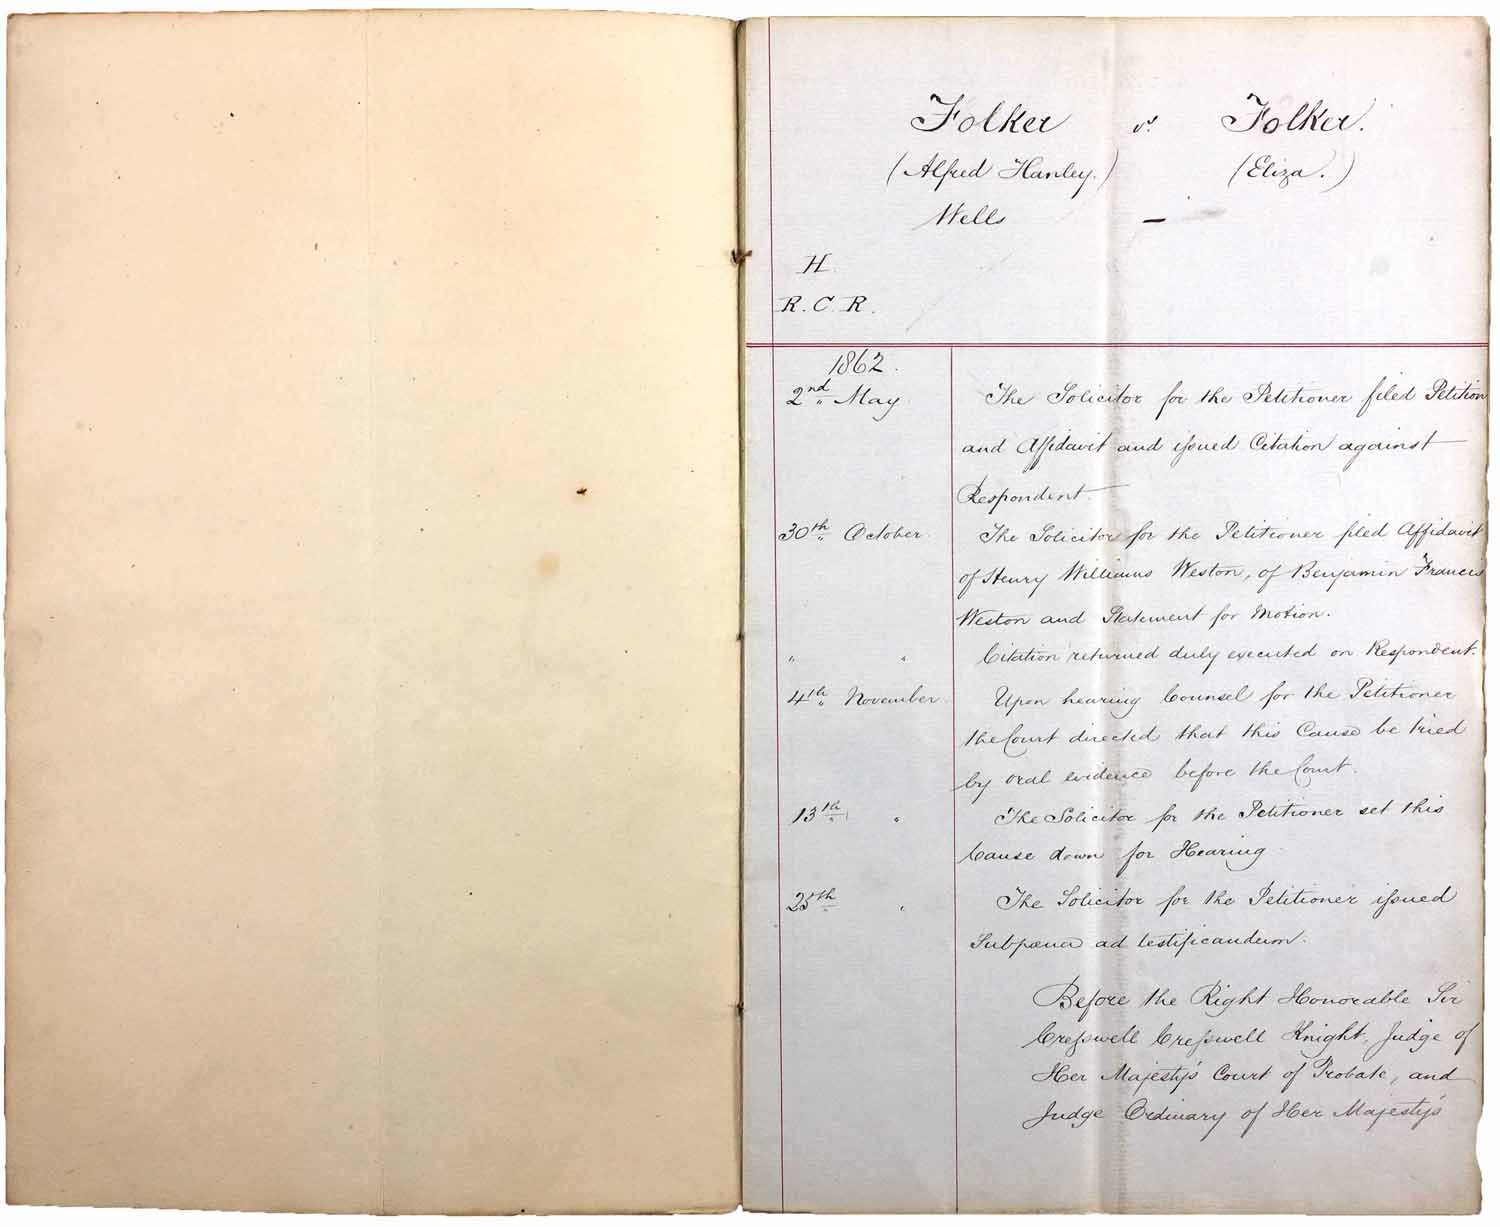 Folker vs. Folker.
(Alfred Hanley.) (Eliza.)
Wells —
H.
R. C. R.
1862.
2nd " May The Solicitor for the Petitioner filed Petition
and Affidavit and issued Citation against
Respondent.
30th " October. The Solicitor for the Petitioner filed Affidavit
of Henry Williams Weston, of Benjamin Francis
Weston and Statement for Motion.
" " Citation returned duly executed on Respondent.
4th " November. Upon hearing Counsel for the Petitioner
the Court directed that this Cause be tried
by oral evidence before the Court.
13th " " The Solicitor for the Petitioner set this
Cause down for Hearing.
25th " " The Solicitor for the Petitioner issued
Subpœna ad testificandum.
Before the Right Honorable Sir
Cresswell Cresswell Knight, Judge of
Her Majesty's Court of Probate, and
Judge Ordinary of Her Majesty's